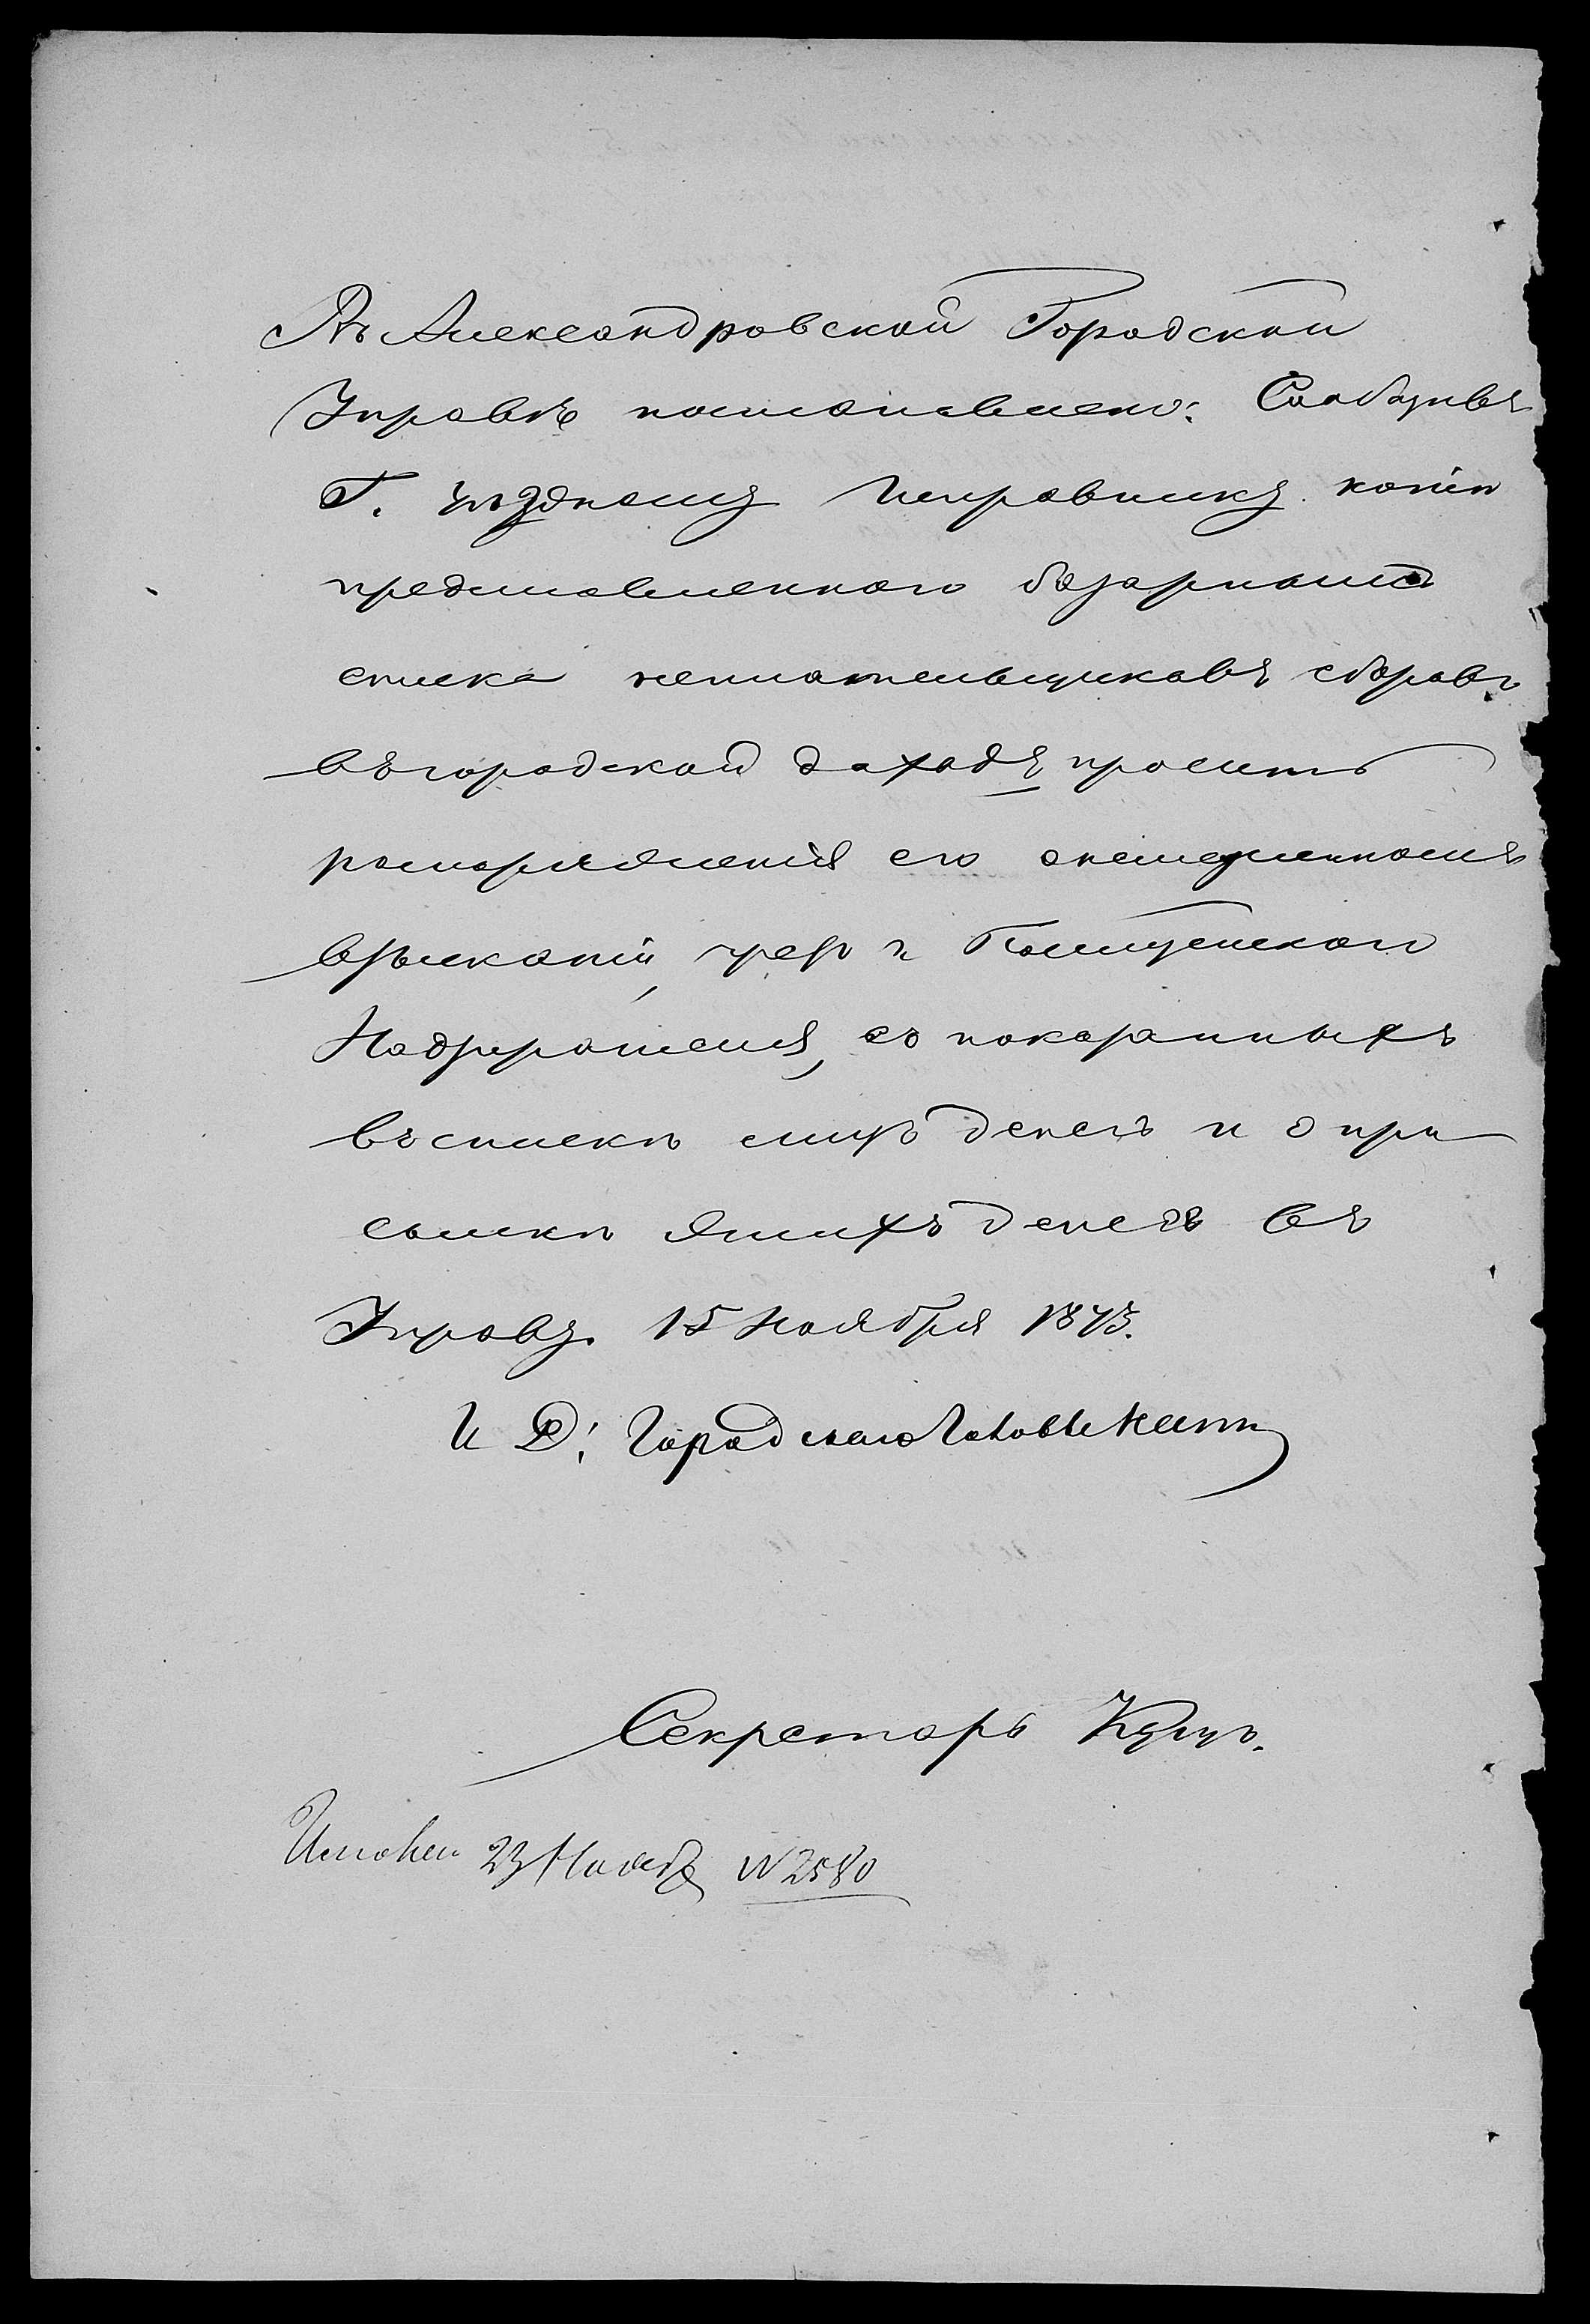 Въ Александровской Городской
Управѣ постановлено: Сообщивъ
Г. уѣздному Исправнику копiю
представленного базарнымъ
списка неплательщиковъ сборовъ
въ городской доходъ, просить
распоряженiя его о немедленномъ
взысканiи, чрезъ Полицейскаго
Надзирателя, съ показанныхъ
въ спискѣ лицъ денегъ и о при
сылкѣ этихъ денегъ въ
Управу. 15 Ноября 1873.
И Д: Городского Головы
Секретарь Куцъ.
Исполнен 23 Ноября № 2580